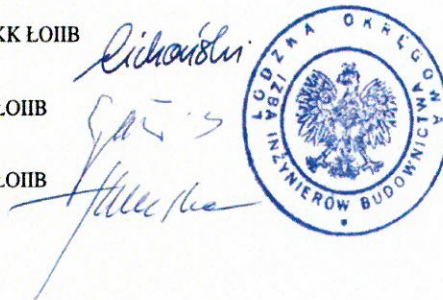 KK ŁOIIB
Cichoński
ŁOIIB
ŁOIIB
ŁÓDZKA OKRĘGOWA
IZBA INŻYNIERÓW BUDOWNICTWA